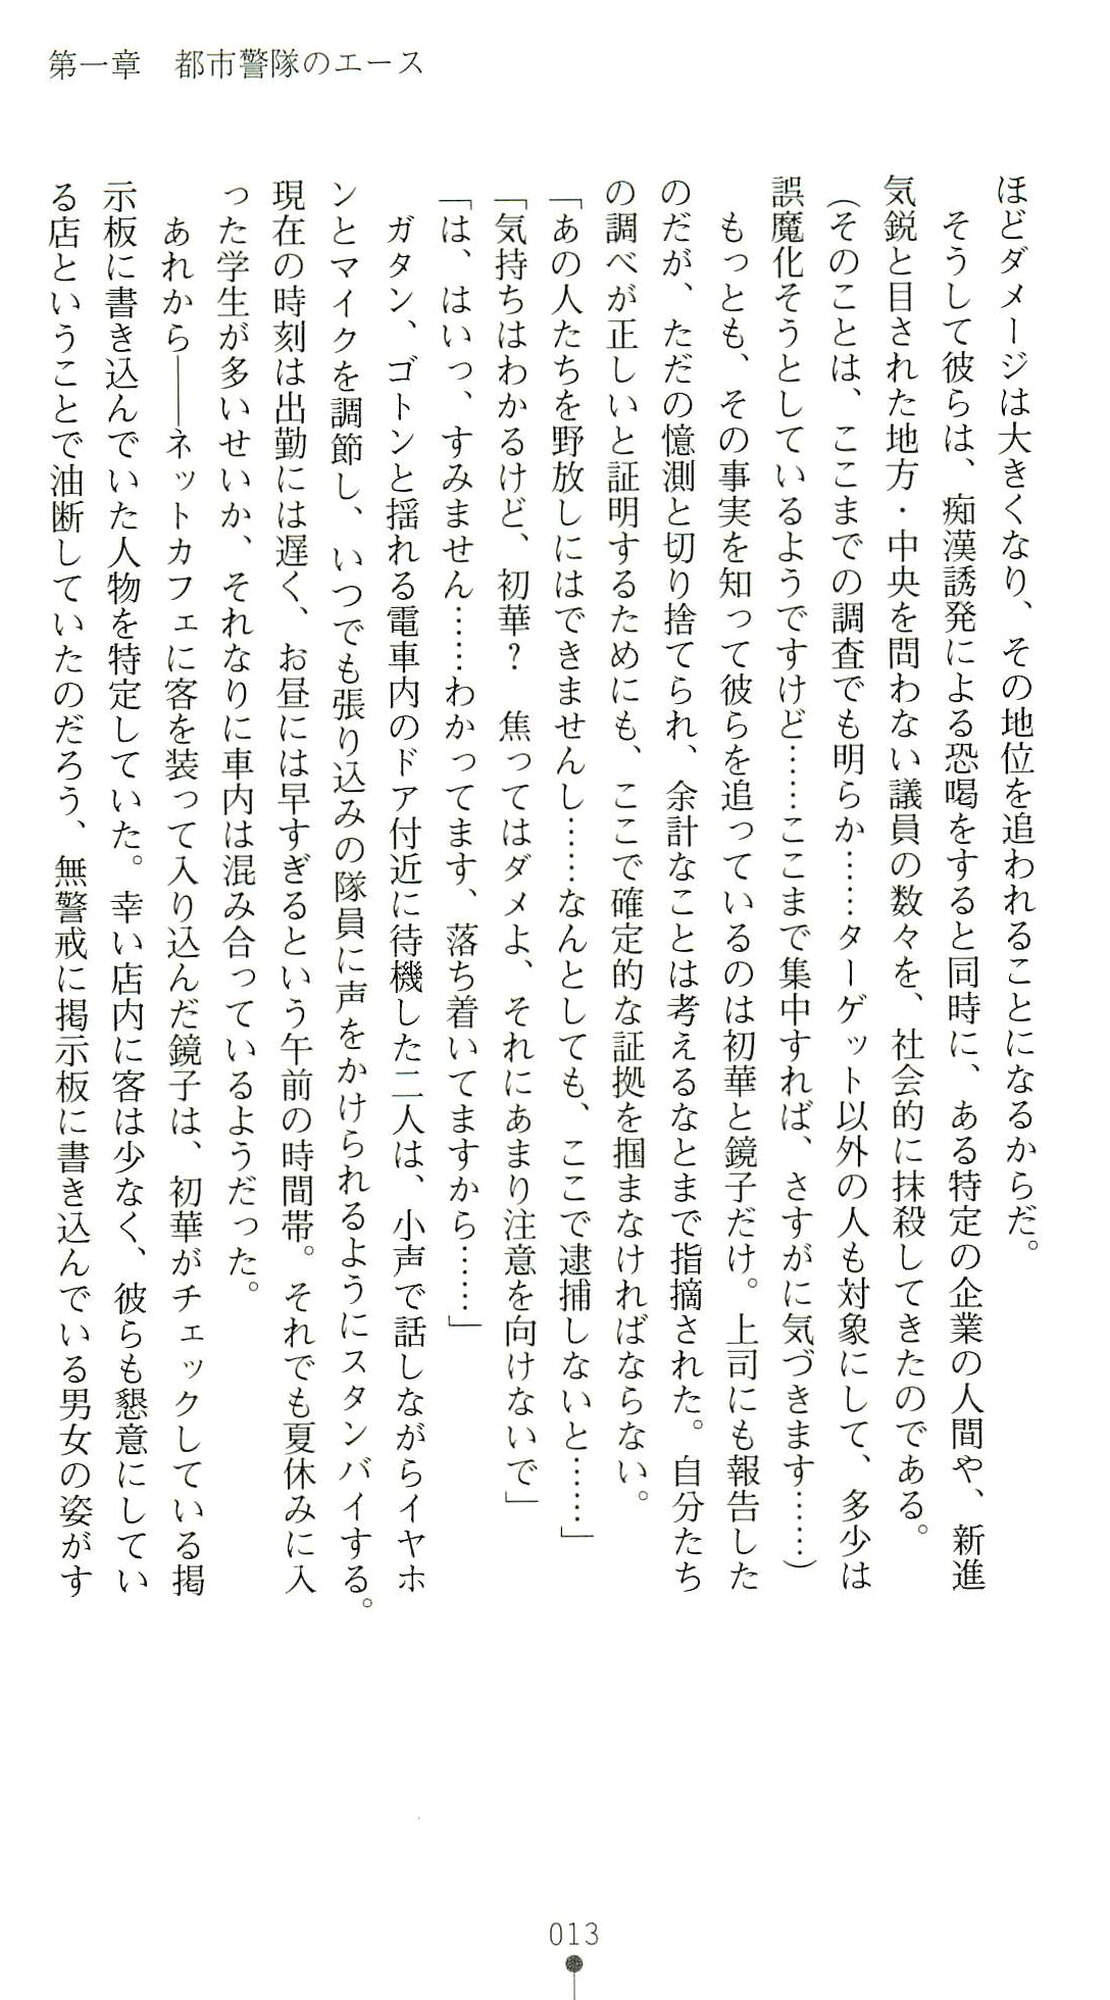 第一章　都市警隊のエース
ほどダメージは大きくなり、その地位を追われることになるからだ。
　そうして彼らは、痴漢誘発による恐喝をすると同時に、ある特定の企業の人間や、新進
気鋭と目された地方・中央を問わない議員の数々を、社会的に抹殺してきたのである。
（そのことは、ここまでの調査でも明らか……ターゲット以外の人も対象にして、多少は
誤魔化そうとしているようですけど……ここまで集中すれば、さすがに気づきます……）
　もっとも、その事実を知って彼らを追っているのは初華と鏡子だけ。上司にも報告した
のだが、ただの憶測と切り捨てられ、余計なことは考えるなとまで指摘された。自分たち
の調べが正しいと証明するためにも、ここで確定的な証拠を掴まなければならない。
「あの人たちを野放しにはできませんし……なんとしても、ここで逮捕しないと……」
「気持ちはわかるけど、初華？　焦ってはダメよ、それにあまり注意を向けないで」
「は、はいっ、すみません……わかってます、落ち着いてますから……」
　ガタン、ゴトンと揺れる電車内のドア付近に待機した二人は、小声で話しながらイヤホ
ンとマイクを調節し、いつでも張り込みの隊員に声をかけられるようにスタンバイする。
現在の時刻は出勤には遅く、お昼には早すぎるという午前の時間帯。それでも夏休みに入
った学生が多いせいか、それなりに車内は混み合っているようだった。
　あれから――ネットカフェに客を装って入り込んだ鏡子は、初華がチェックしている掲
示板に書き込んでいた人物を特定していた。幸い店内に客は少なく、彼らも懇意にしてい
る店ということで油断していたのだろう、無警戒に掲示板に書き込んでいる男女の姿がす
013